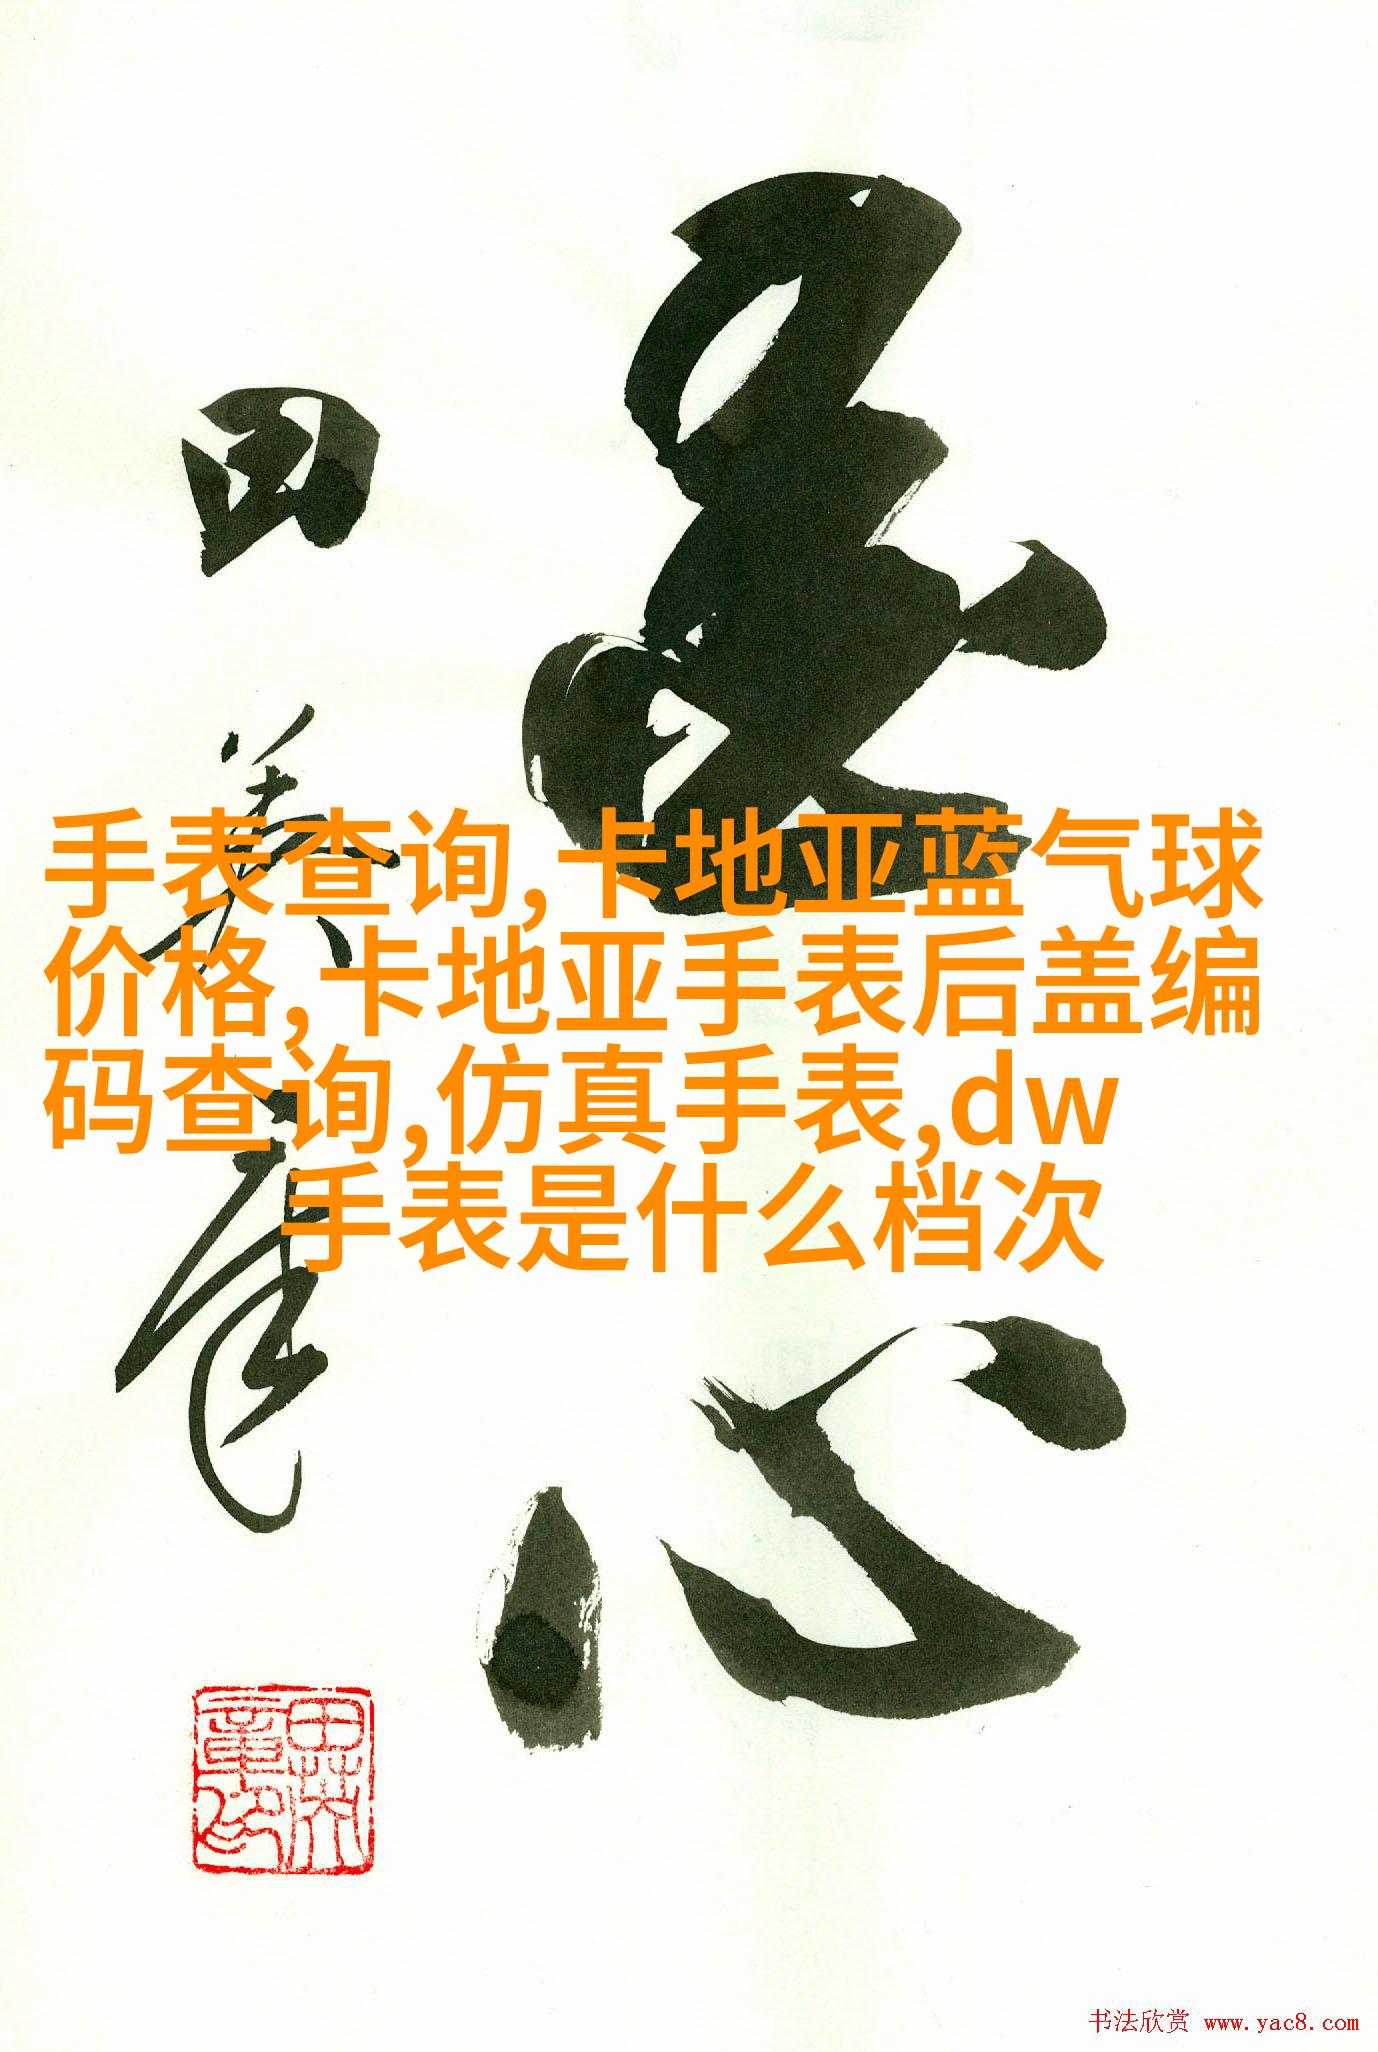 手表查询,卡地亚蓝气球
价格,卡地亚手表后盖编
码查询,仿真手表,dw
手表是什么档次
心
田
英
章
田英章印
书法欣赏 www.yac8.com